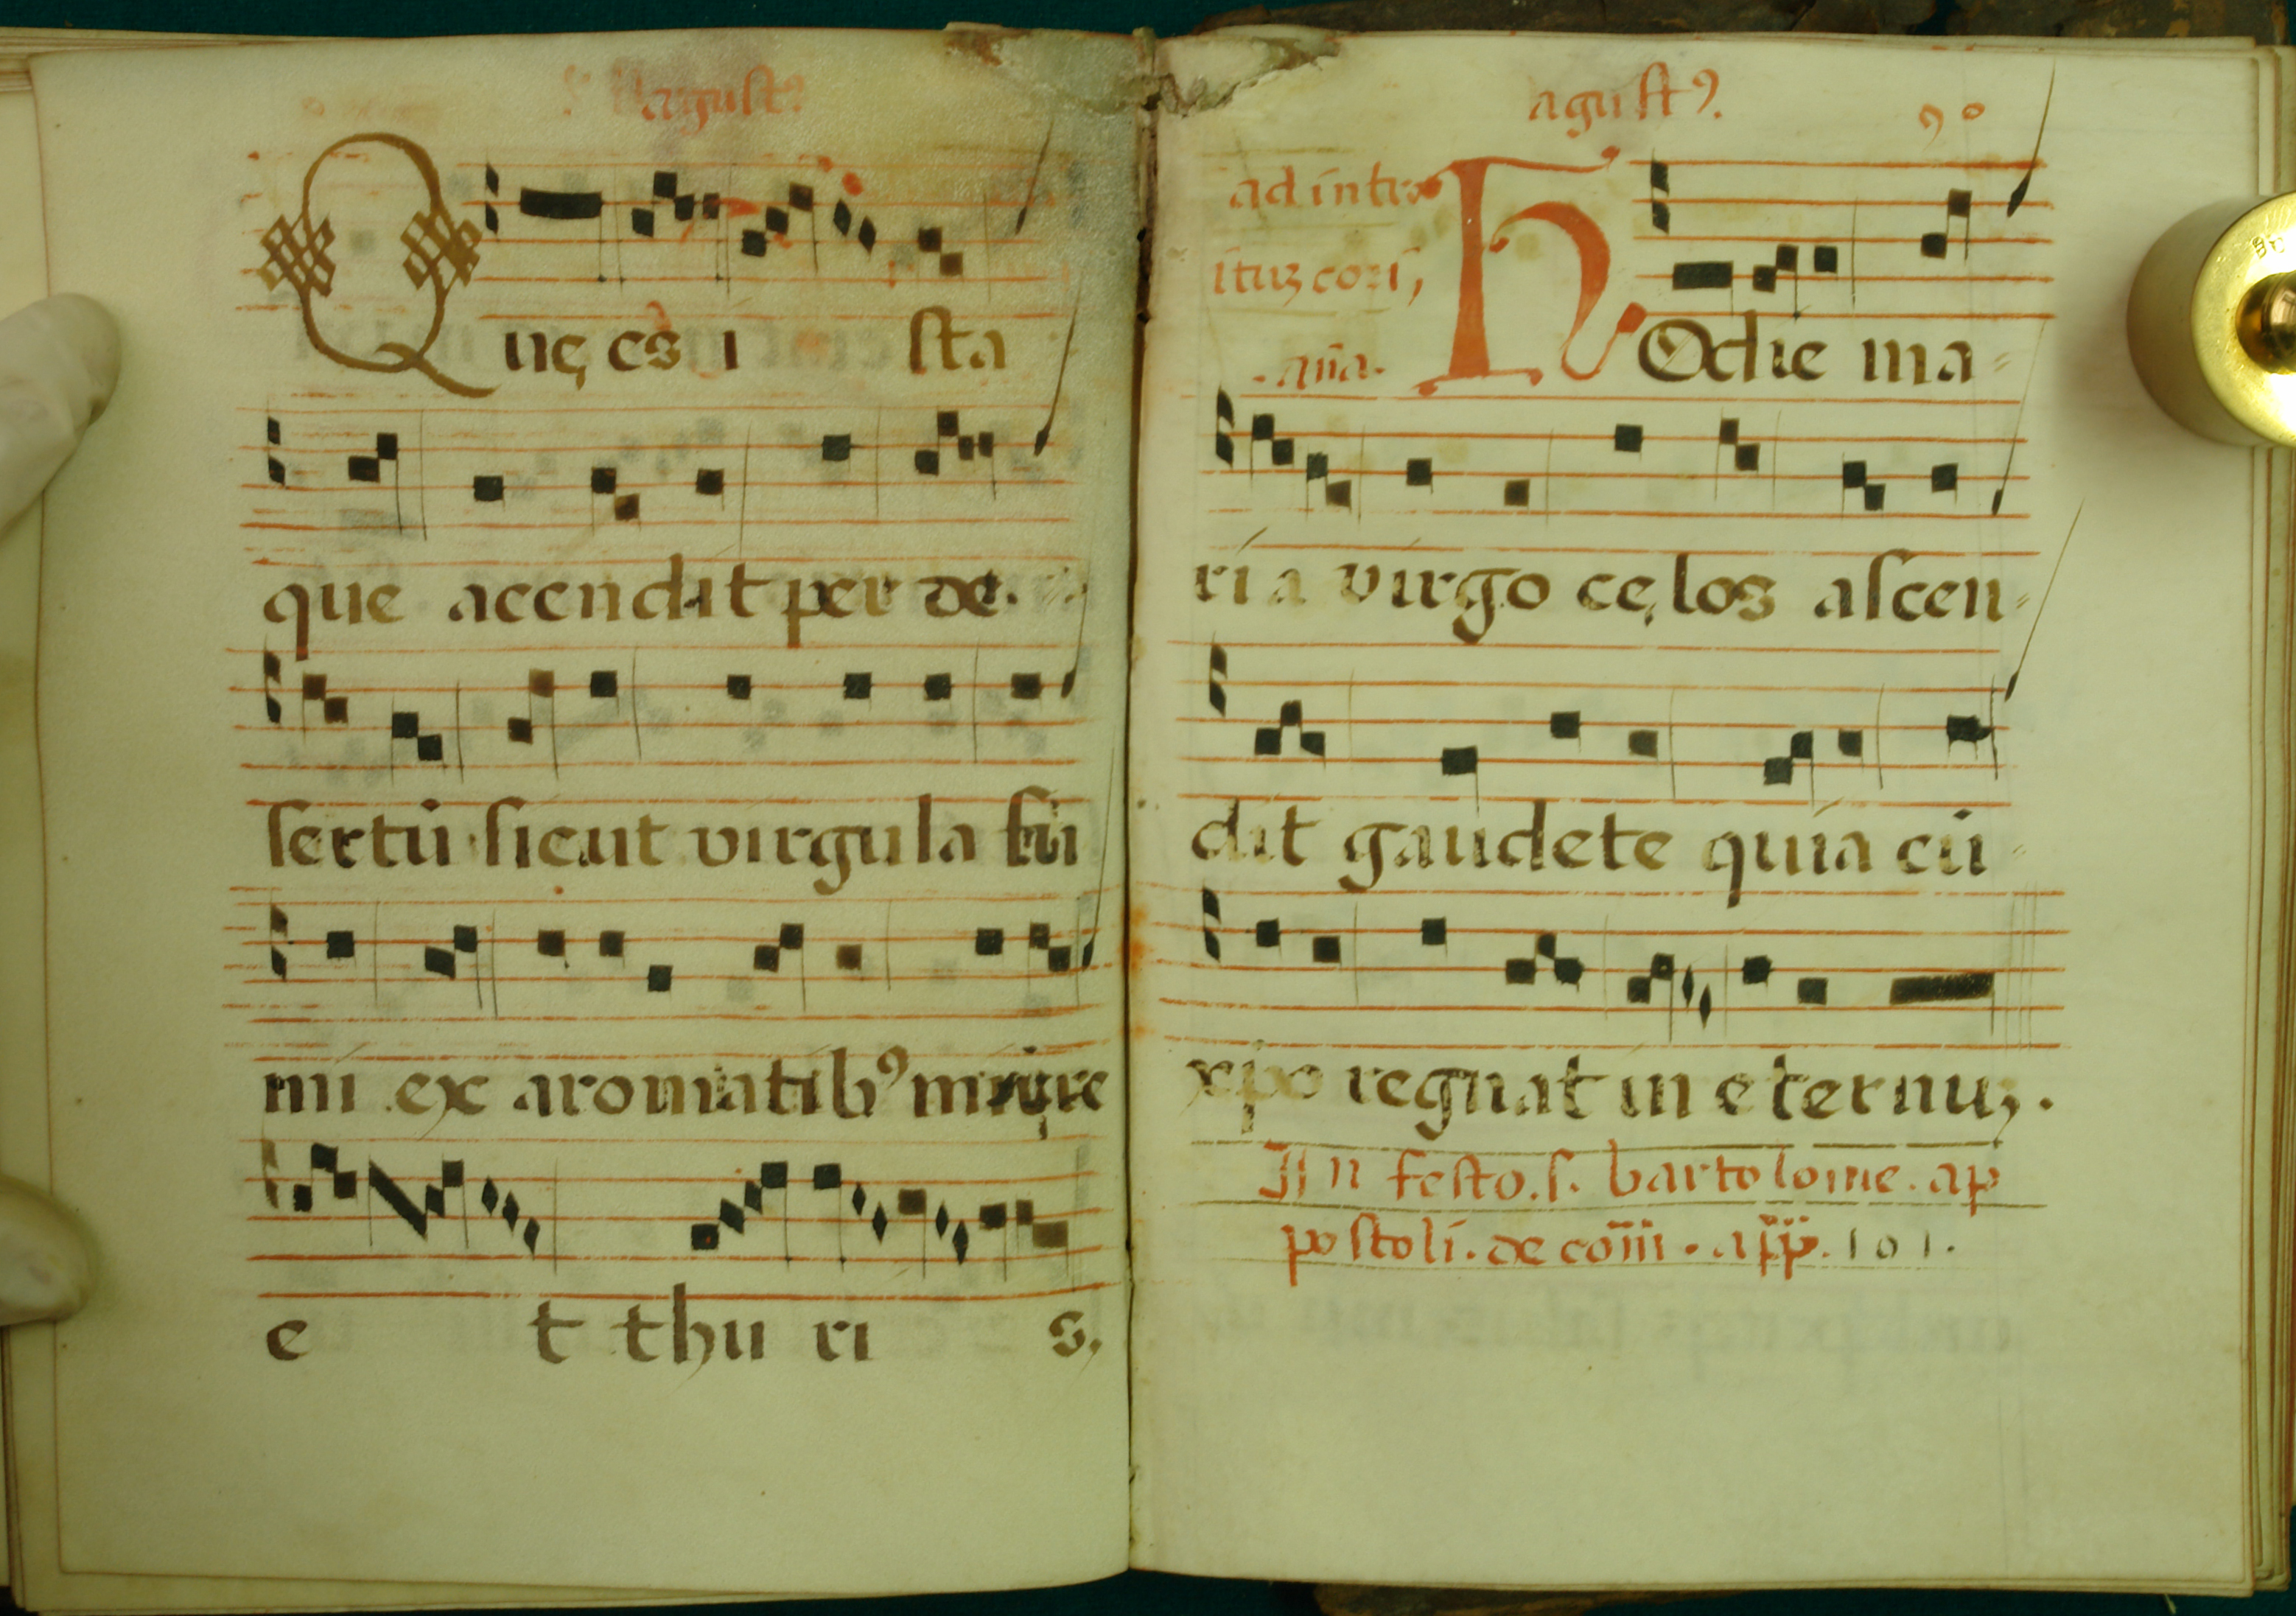 agust⁹
Que̜ es i sta
que acendit per de.
sertū sicut virgula fu
mi ex aromatib⁹ mirre
e t thu ri s,
agust⁹.
9º
ad intro
ituʒ cori,
.an̄a.
HOdie ma=
ria virgo ce̜los ascen=
dit gaudete quia cū
xp̄o regnat in eternuʒ.
In festo.s. bartolome.ap
postoli. de com̄i. app̄. 101.